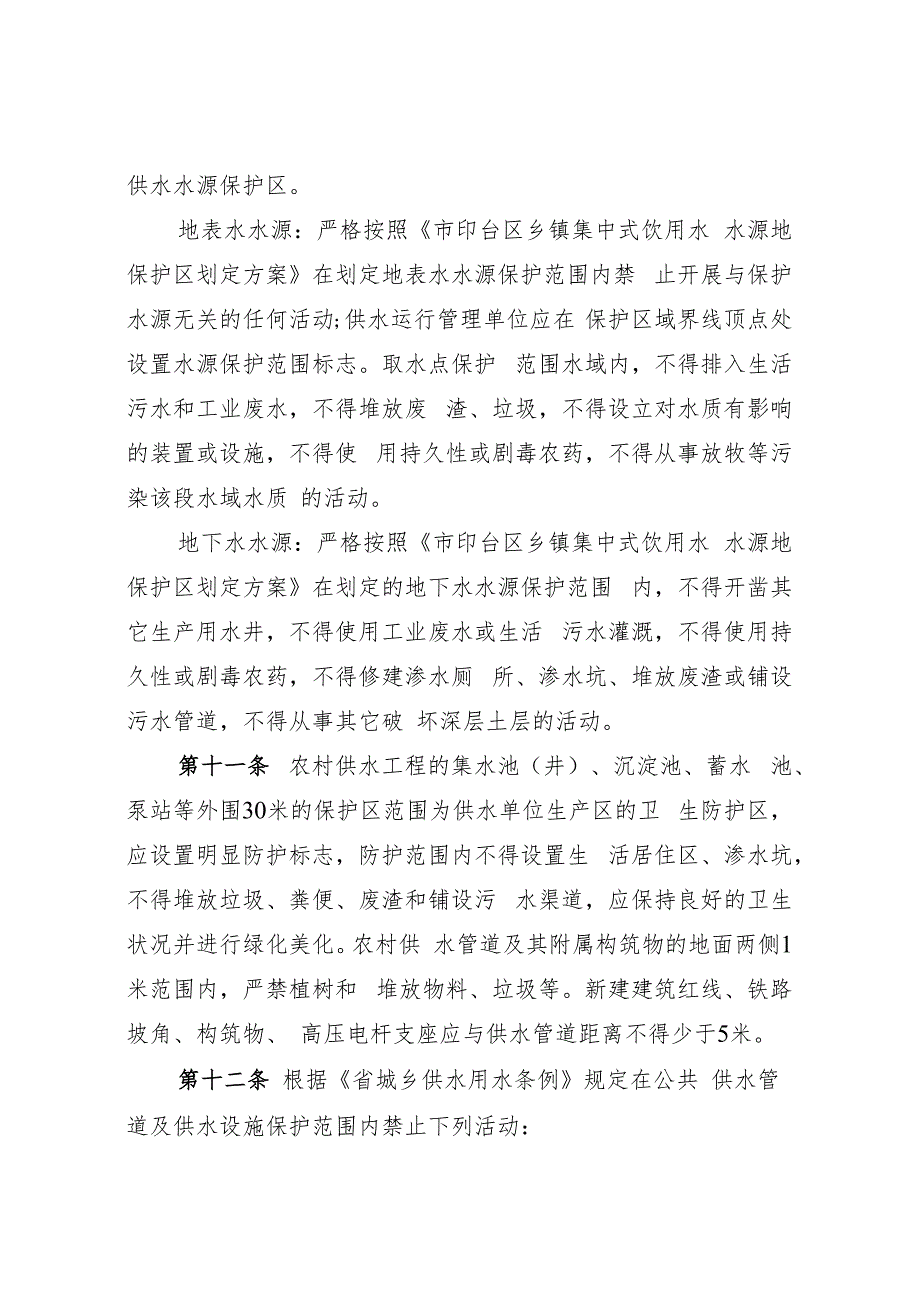 供水水源保护区。
地表水水源：严格按照《市印台区乡镇集中式饮用水 水源地
保护区划定方案》在划定地表水水源保护范围内禁 止开展与保护
水源无关的任何活动;供水运行管理单位应在 保护区域界线顶点处
设置水源保护范围标志。取水点保护 范围水域内，不得排入生活
污水和工业废水，不得堆放废 渣、垃圾，不得设立对水质有影响
的装置或设施，不得使 用持久性或剧毒农药，不得从事放牧等污
染该段水域水质 的活动。
地下水水源：严格按照《市印台区乡镇集中式饮用水 水源地
保护区划定方案》在划定的地下水水源保护范围 内，不得开凿其
它生产用水井，不得使用工业废水或生活 污水灌溉，不得使用持
久性或剧毒农药，不得修建渗水厕 所、渗水坑、堆放废渣或铺设
污水管道，不得从事其它破 坏深层土层的活动。
第十一条 农村供水工程的集水池（井）、沉淀池、蓄水 池、
泵站等外围30米的保护区范围为供水单位生产区的卫 生防护区，
应设置明显防护标志，防护范围内不得设置生 活居住区、渗水坑，
不得堆放垃圾、粪便、废渣和铺设污 水渠道，应保持良好的卫生
状况并进行绿化美化。农村供 水管道及其附属构筑物的地面两侧1
米范围内，严禁植树和 堆放物料、垃圾等。新建建筑红线、铁路
坡角、构筑物、 高压电杆支座应与供水管道距离不得少于5米。
第十二条 根据《省城乡供水用水条例》规定在公共 供水管
道及供水设施保护范围内禁止下列活动：